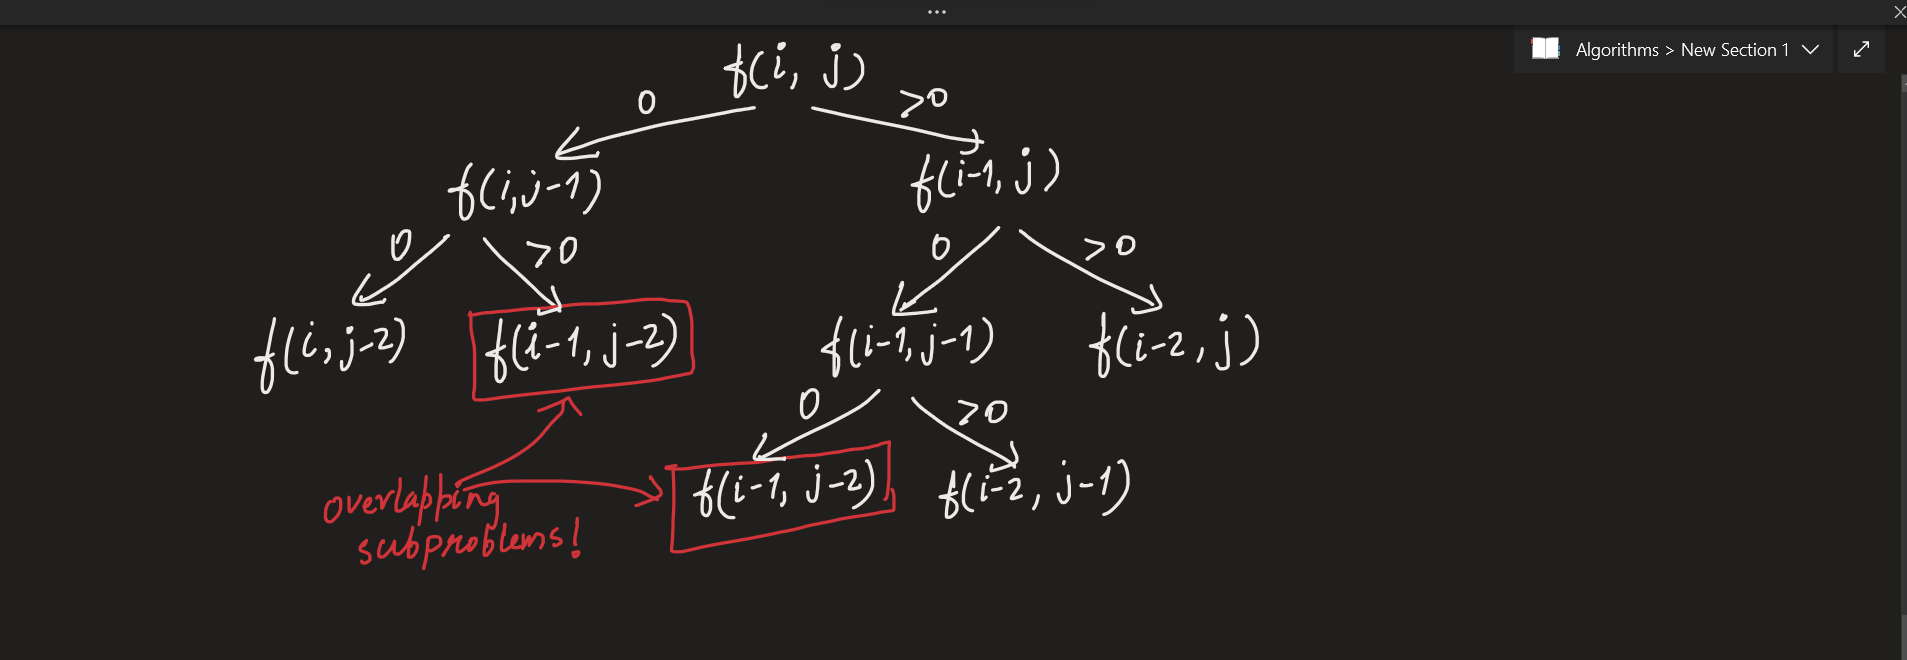 Algorithms > New Section 1
f(i, j)
0 >0
f(i,j-1) f(i-1, j)
0 >0 0 >0
f(i, j-2) f(i-1, j-2) f(i-1, j-1) f(i-2, j)
0 >0
f(i-1, j-2) f(i-2, j-1)
overlapping
subproblems!